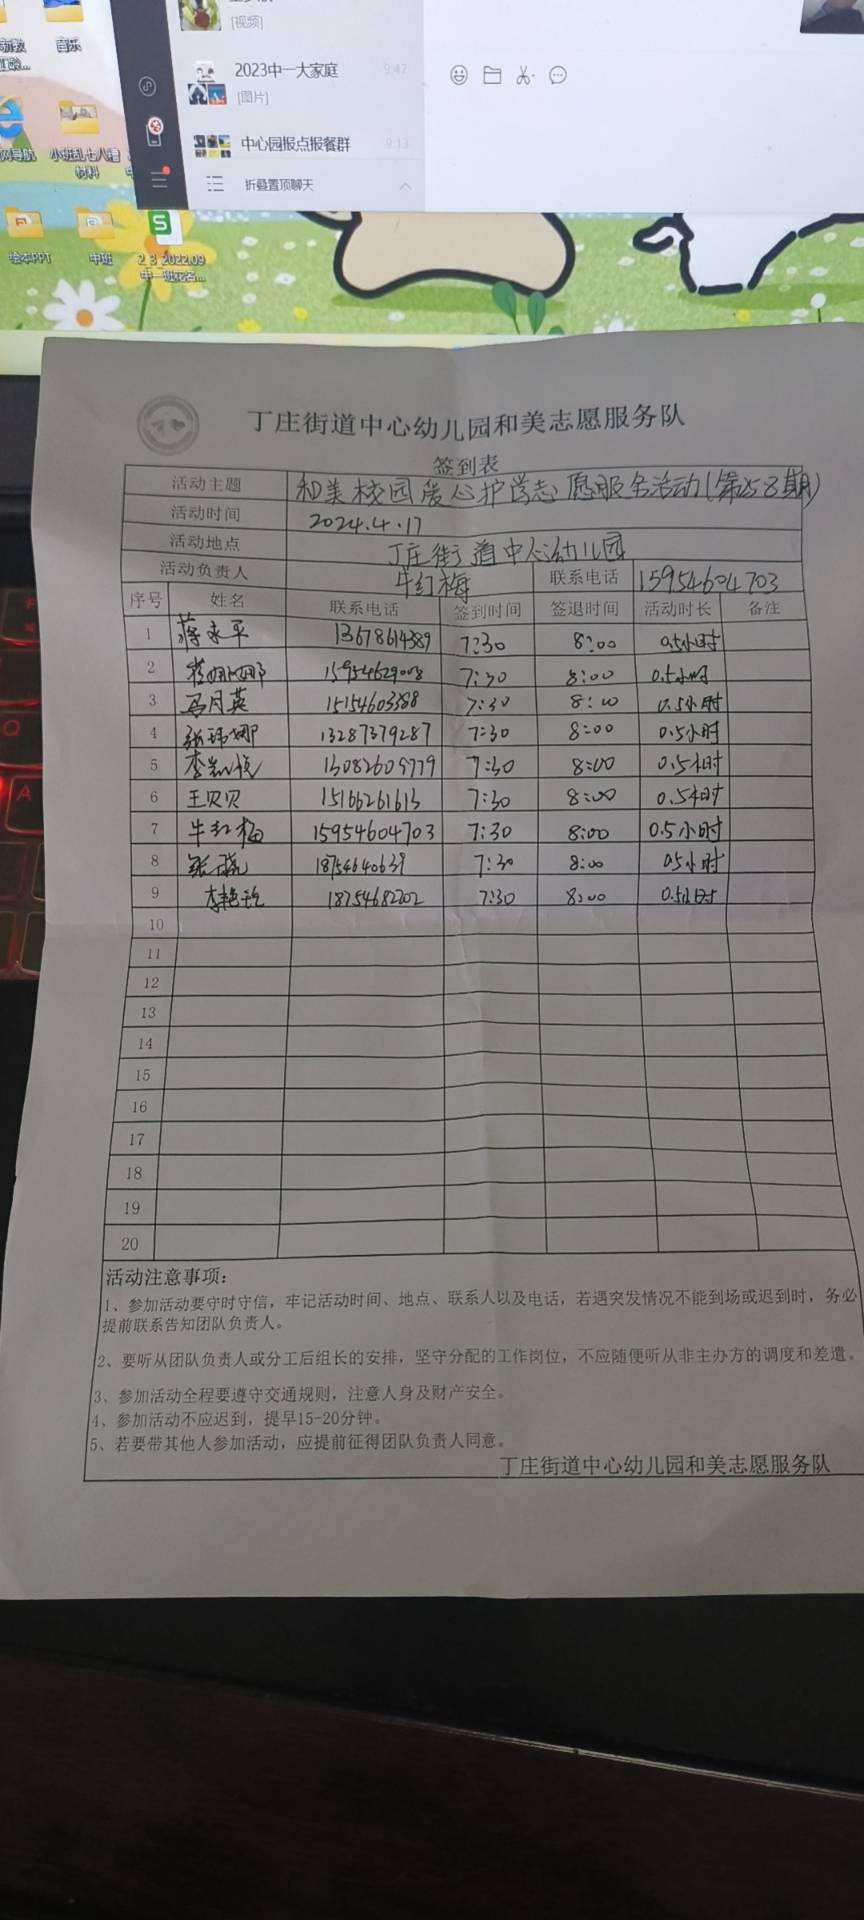 [视频]
音乐
2023中一大家庭 9:47
[图片]
中心园报点报餐群 9:13
折叠置顶聊天
网导航
小班乱七八糟
材料
绘本PPT
中班
2_3_2022.09
中一班花名...
丁庄街道中心幼儿园和美志愿服务队
签到表
活动主题 和美校园爱心护学志愿服务活动(第258期)
活动时间 2024.4.17
活动地点 丁庄街道中心幼儿园
活动负责人 牛红梅 联系电话 15954604703
序号 姓名 联系电话 签到时间 签退时间 活动时长 备注
1 蒋永平 13678614389 7:30 8:00 0.5小时
2 15954629008 7:30 8:00 0.5小时
3 马月英 15154603388 7:30 8:00 0.5小时
4 张玮娜 13287379287 7:30 8:00 0.5小时
5 李凯悦 13082605779 7:30 8:00 0.5小时
6 王贝贝 15166261613 7:30 8:00 0.5小时
7 牛红梅 15954604703 7:30 8:00 0.5小时
8 张晓 18754640639 7:30 8:00 0.5小时
9 18754682202 7:30 8:00 0.5小时
10
11
12
13
14
15
16
17
18
19
20
活动注意事项：
1、参加活动要守时守信，牢记活动时间、地点、联系人以及电话，若遇突发情况不能到场或迟到时，务必
提前联系告知团队负责人。
2、要听从团队负责人或分工后组长的安排，坚守分配的工作岗位，不应随便听从非主办方的调度和差遣。
3、参加活动全程要遵守交通规则，注意人身及财产安全。
4、参加活动不应迟到，提早15-20分钟。
5、若要带其他人参加活动，应提前征得团队负责人同意。
丁庄街道中心幼儿园和美志愿服务队